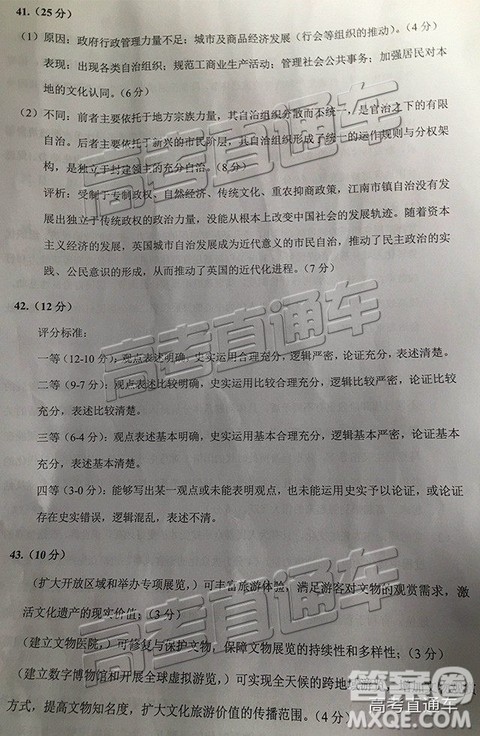 41.（25 分）
（1）原因：政府行政管理力量不足；城市及商品经济发展（行会等组织的推动）。（4 分）
表现：出现各类自治组织；规范工商业生产活动；管理社会公共事务；加强居民对本
地的文化认同。（6 分）
（2）不同：前者主要依托于地方宗族力量，其自治组织分散而不统一，是官治之下的有限
自治。后者主要依托于新兴的市民阶层，具自治组织形成了统一的运作规则与分权架
构，是独立于封建领主的充分自治。（8 分）
评析：受制于专制政权、自然经济、传统文化、重农抑商政策，江南市镇自治没有发
展出独立于传统政权的政治力量，没能从根本上改变中国社会的发展轨迹。随着资本
主义经济的发展，英国城市自治发展成为近代意义的市民自治，推动了民主政治的实
践、公民意识的形成，从而推动了英国的近代化进程。（7 分）
42.（12 分）
评分标准：
一等（12-10 分）：观点表述明确，史实运用合理充分，逻辑严密，论证充分，表述清楚。
二等（9-7 分）：观点表述比较明确，史实运用比较合理充分，逻辑比较严密，论证比较
充分，表述比较清楚。
三等（6-4 分）：观点表述基本明确，史实运用基本合理充分，逻辑基本严密，论证基本
充分，表述基本清楚。
四等（3-0 分）：能够写出某一观点或未能表明观点，也未能运用史实予以论证，或论证
存在史实错误，逻辑混乱，表述不清。
43.（10 分）
（扩大开放区域和举办专项展览，）可丰富旅游体验，满足游客对文物的观赏需求，激
活文化遗产的现实价值；（3 分）
（建立文物医院，）可修复与保护文物，保障文物展览的持续性和多样性；（3 分）
（建立数字博物馆和开展全球虚拟游览，）可实现全天候的跨地
方式，提高文物知名度，扩大文化旅游价值的传播范围。（4 分）
高考直通车
高考直通车
高考直通车
高考直通车
答案圈
MXQE.COM